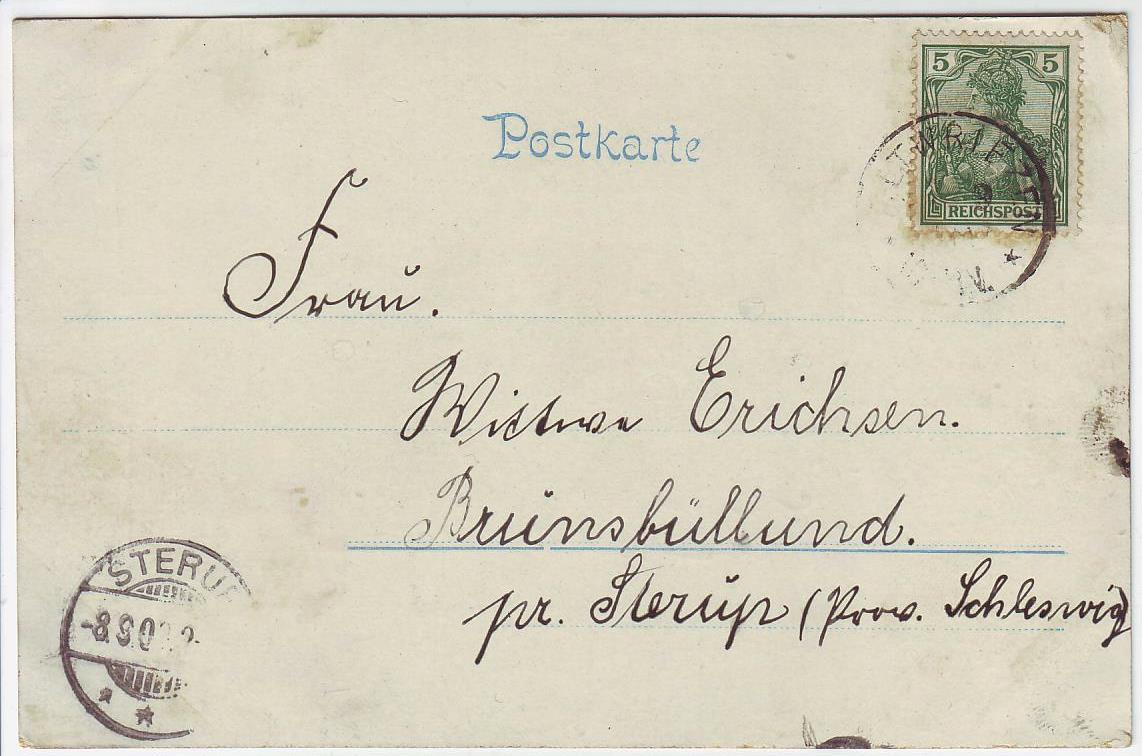 5 5
Postkarte
REICHSPOST
Frau.
Wittwe Erichsen.
Brunsbüllund.
pr. Sterup (Prov. Schleswig
STERUP